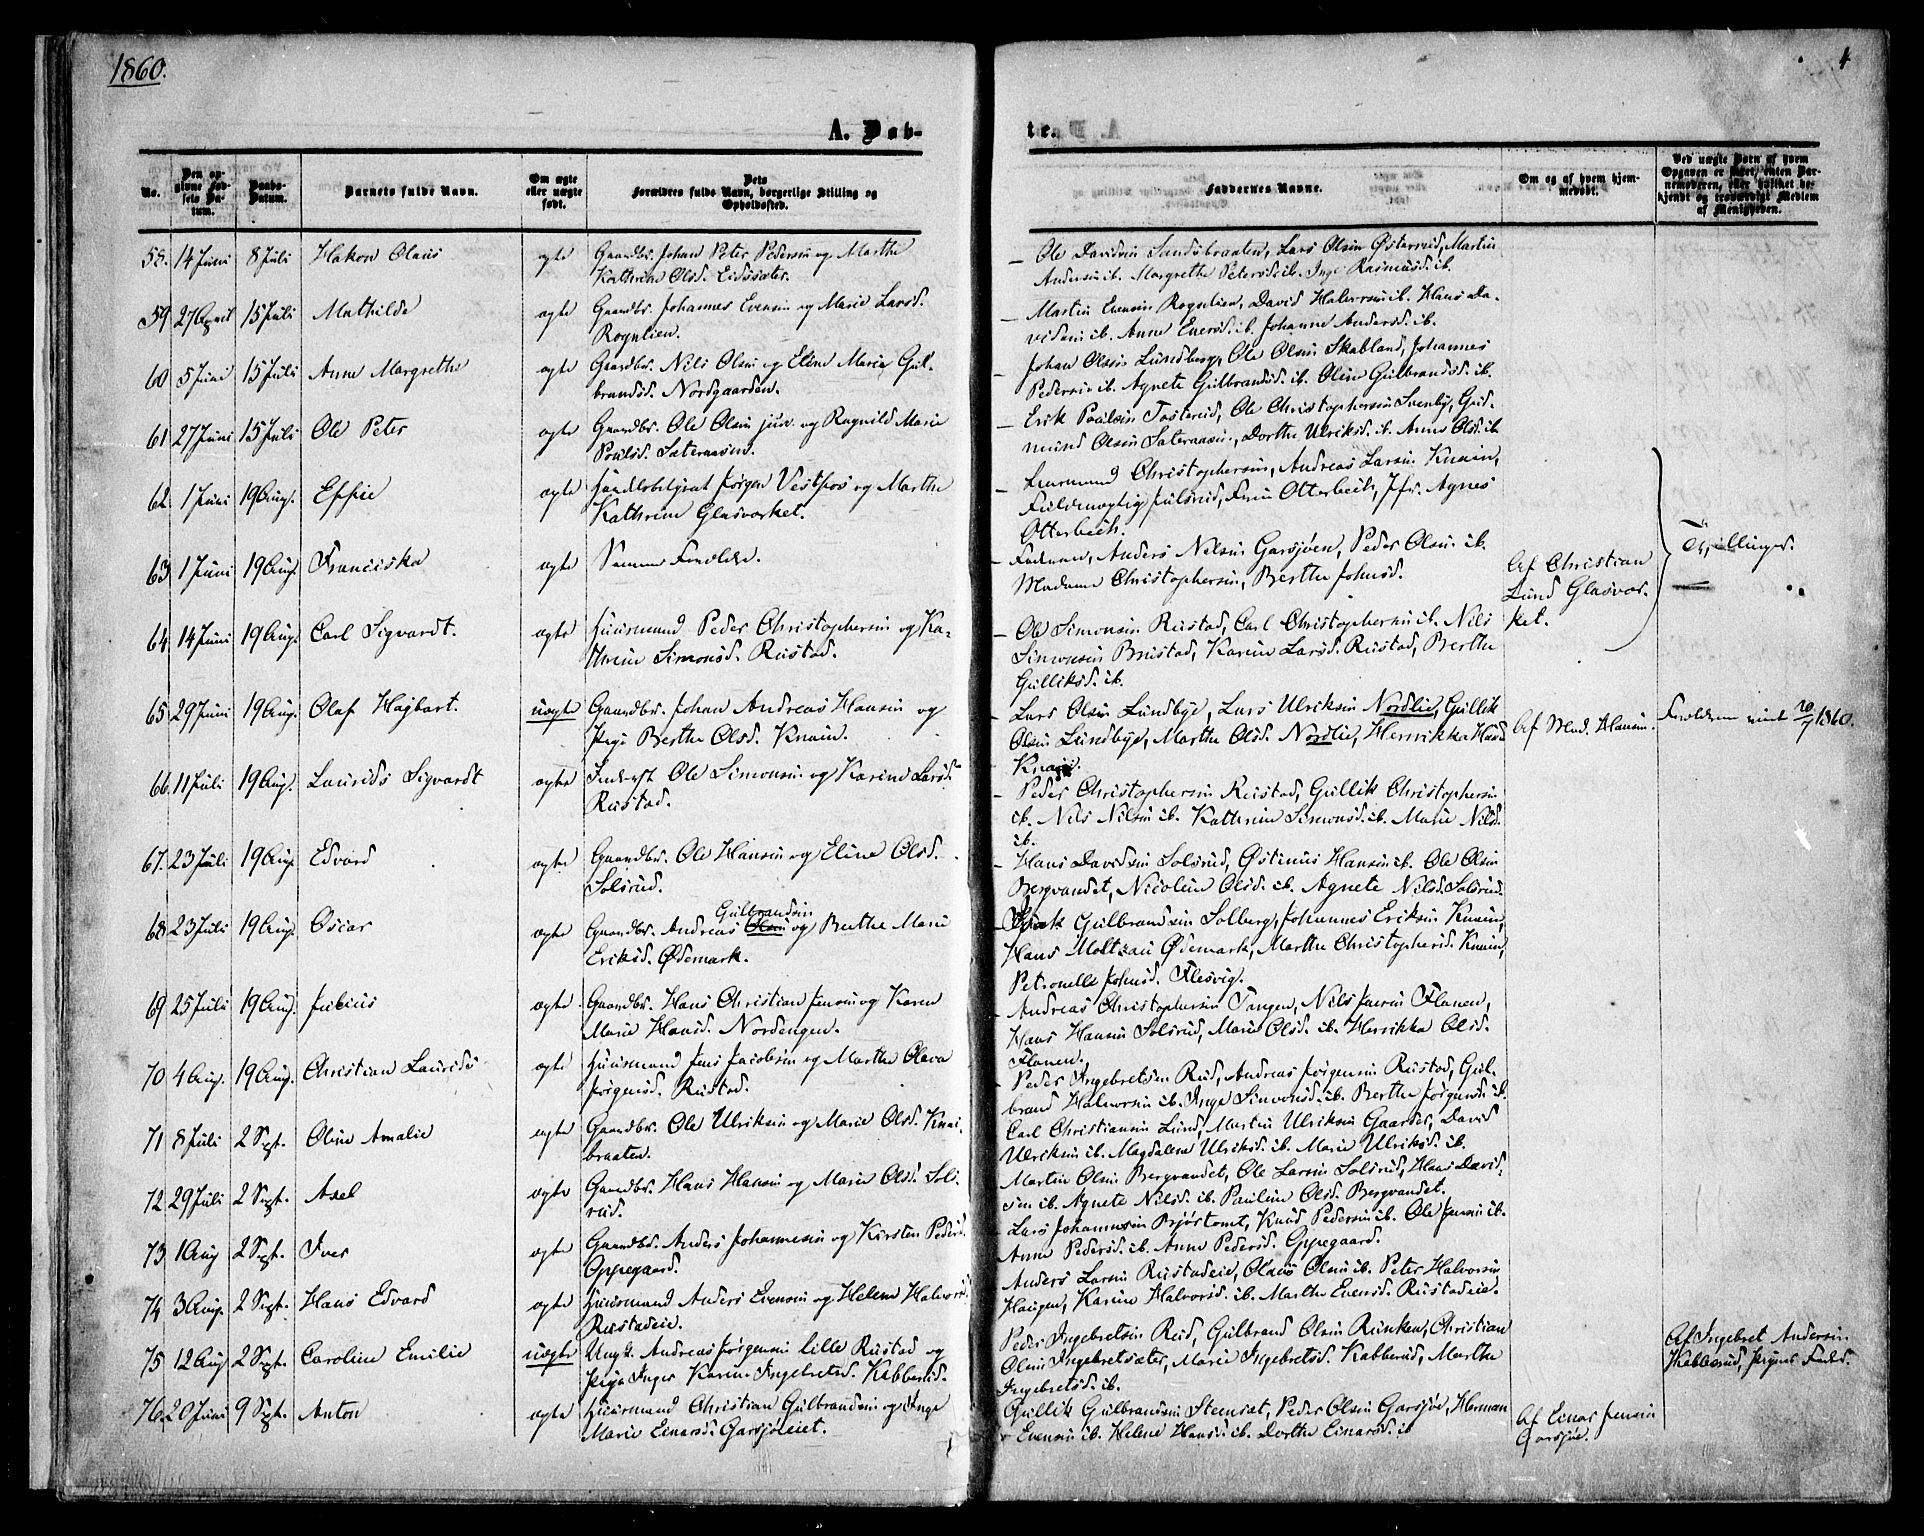 1860.
4
A. Døb-
te.
No.
Den op-
givne Fød-
sels Da-
tum.
Daabs-
Datum.
Barnets fulde Navn.
Om ægte
eller uægte
født.
Dets
Forældres fulde Navn, borgerlige Stilling og
Opholdssted.
Faddernes Navne.
Om og af hvem hjem-
medøbt.
Ved uægte Børn af hvem
Opgaven er skeet, enten Bar-
nemoderen, eller hvilket be-
kjendt og troværdigt Medlem
af Menigheden.
58. 14 Juni 8 Juli Hakon Olaus ægte Gaardbr. Johan Peter Pedersen og Marthe
Kathrine Olsd. Eidssæter.
Ole Davidsen Sundsbraaten, Lars Olsen Østerud, Martin
Andersen ib. Margrethe Petersd. ib. Inge Rasmusd. ib.
59 27 April 15 Juli Mathilde ægte Gaardbr. Johannes Evensen og Marie Larsd.
Rognlien.
Martin Evensen Rognlien, David Halvorsen ib. Hans Da-
vidsen ib. Anne Eversd. ib. Johanne Andersd. ib.
60 5 Juni 15 Juli Anne Margrethe ægte Gaardbr. Nils Olsen og Eline Marie Gul-
brandsd. Nordgaarden.
Johan Olsen Lundberg, Ole Olsen Skabland, Johannes
Pedersen ib. Agnete Gulbrandsd. ib. Oline Gulbrandsd. ib.
61 27 Juni 15 Juli Ole Peter ægte Gaardbr. Ole Olsen jun. og Ragnild Marie
Poulsd. Sæteraasen.
Erik Poulsen Tostered, Ole Christophersen Svenby, Gud-
mund Olsen Sæteraasen, Dorthe Ulriksd. ib. Anne Olsd. ib
62 1 Juni 19 Aug. Effie ægte Handelsbetjent Jørgen Vestfos og Marthe
Kathrine Glasværket.
Leurmand Christophersen, Andreas Larsen Knain,
Fuldmægtig Julsrud, Fruen Otterbech, Jfr. Agnes
Otterbech.
63 1 Juni 19 Aug. Franciska ægte Samme Forældre.
Faderen, Anders Nelsen Garsjøen, Peder Olsen ib.
Madame Christophersen, Berthe Johnsd.
Af Christian
Lund Glasvær-
ket.
Tvillinger.
64 14 Juni 19 Aug. Carl Sigvardt. ægte Huusmand Peder Christophersen og Ka-
thrine Simonsd. Rustad.
Ole Simonsen Rustad, Carl Christophersen ib. Nils
Simonsen Brustad, Karine Larsd. Rustad, Berthe
Gulliksd. ib.
65 29 Juni 19 Aug. Olaf Hagbart. uægte Gaardbr. Johan Andreas Hansen og
Pige Berthe Olsd. Knain.
Lars Olsen Lundbye, Lars Ulriksen Nordlie, Gullik
Olsen Lundbye, Marthe Olsd. Nordlie, Henrikka Hansd
Knain.
Af Mad. Hansen.
Forældrene 1860.
66 11 Juli 19 Aug. Laurids Sigvardt ægte Inderst Ole Simonsen og Karine Larsd.
Rustad.
Peder Christophersen Rustad, Gullik Christophersen
ib. Nils Nilsen ib. Kathrine Simonsd. ib. Marie Nilsd.
ib.
67. 23 Juli 19 Aug Edvard ægte Gaardbr. Ole Hansen og Eline Olsd.
Solsrud.
Hans Davidsen Solsrud, Østinus Hansen ib. Ole Olsen
Bergvandet, Nicoline Olsd. ib. Agnete Nilsd. Solsrud.
68 23 Juli 19 Aug Oscar ægte Gaardbr. Andreas Olsen Gulbrandsen og Berthe Marie
Eriksd. Ødemark.
Gulbrandsen Solberg, Johannes Eriksen Knain,
Hans Moltzau Ødemark, Marthe Christophersd. Knain,
Petronelle Johnsd. Flesvig.
69 25 Juli 19 Aug. Julius ægte Gaardbr. Hans Christian Jensen og Karen
Marie Hansd. Nordengen.
Andreas Christophersen Tangen, Nils Jensen Flanen,
Hans Hansen Solsrud, Marie Olsd. ib. Henrikka Olsd.
Flanen.
70 4 Aug. 19 Aug. Christian Laurids ægte Huusmand Jens Jacobsen og Marthe Olava
Jørgensd. Rustad.
Peder Ingebretsen Rud, Andreas Jørgensen Rustad, Gul-
brand Halvorsen ib. Inge Simonsd. ib. Berthe Jørgensd. ib.
71 8 Juli 2 Sept. Oline Amalie ægte Gaardbr. Ole Ulriksen og Marie Olsd. Knai-
braaten.
Carl Christiansen Lund, Martin Ulriksen Gaarder, David
Ulriksen ib. Magdalene Ulriksd. ib. Marie Ulriksd. ib.
72 29 Juli 2 Sept. Axel ægte Gaardbr. Hans Hansen og Marie Olsd. Sol-
rud.
Martin Olsen Bergvandet, Ole Larsen Solsrud, Hans David-
sen ib. Agnete Nilsd. ib. Pauline Olsd. Bergvandet.
73 1 Aug 2 Sept. Iver ægte Gaardbr. Anders Johannesen og Kirsten Pedersd.
Oppegaard.
Lars Johannesen Bjørtomt, Knud Pedersen ib. Ole Jensen ib.
Anne Pedersd. ib. Anne Pedersd. Oppegaard.
74 3 Aug. 2 Sept. Hans Edvard ægte Huusmand Anders Evensen og Helene Halvorsd.
Rustadeie.
Anders Larsen Rustadeie, Olaus Olsen ib. Peter Halvorsen
Haugen, Karine Halvorsd. ib. Marthe Evensd. Rustadeie.
75 12 Aug 2 Sept. Caroline Emilie uægte Ungk. Andreas Jørgensen lille Rustad og
Pige Inger Karine Ingebretsd. Kabberud.
Peder Ingebretsen Rud, Gulbrand Olsen Runken, Christian
Olsen Ingebretsæter, Marie Ingebretsd. Kabberud, Marthe
Ingebretsd. ib.
Af Ingebret Andersen
Kabberud, Pigens Fader.
76. 20 Juni 9 Sept. Anton ægte Huusmand Christian Gulbrandsen og Inge
Marie Einarsd. Garsjøeiet.
Gullik Gulbrandsen Stensæt, Peder Olsen Garsjøe, Herman
Evensen ib. Helene Hansd. ib. Dorthe Einarsd. ib
Af Einar Jensen
Garsjøe.